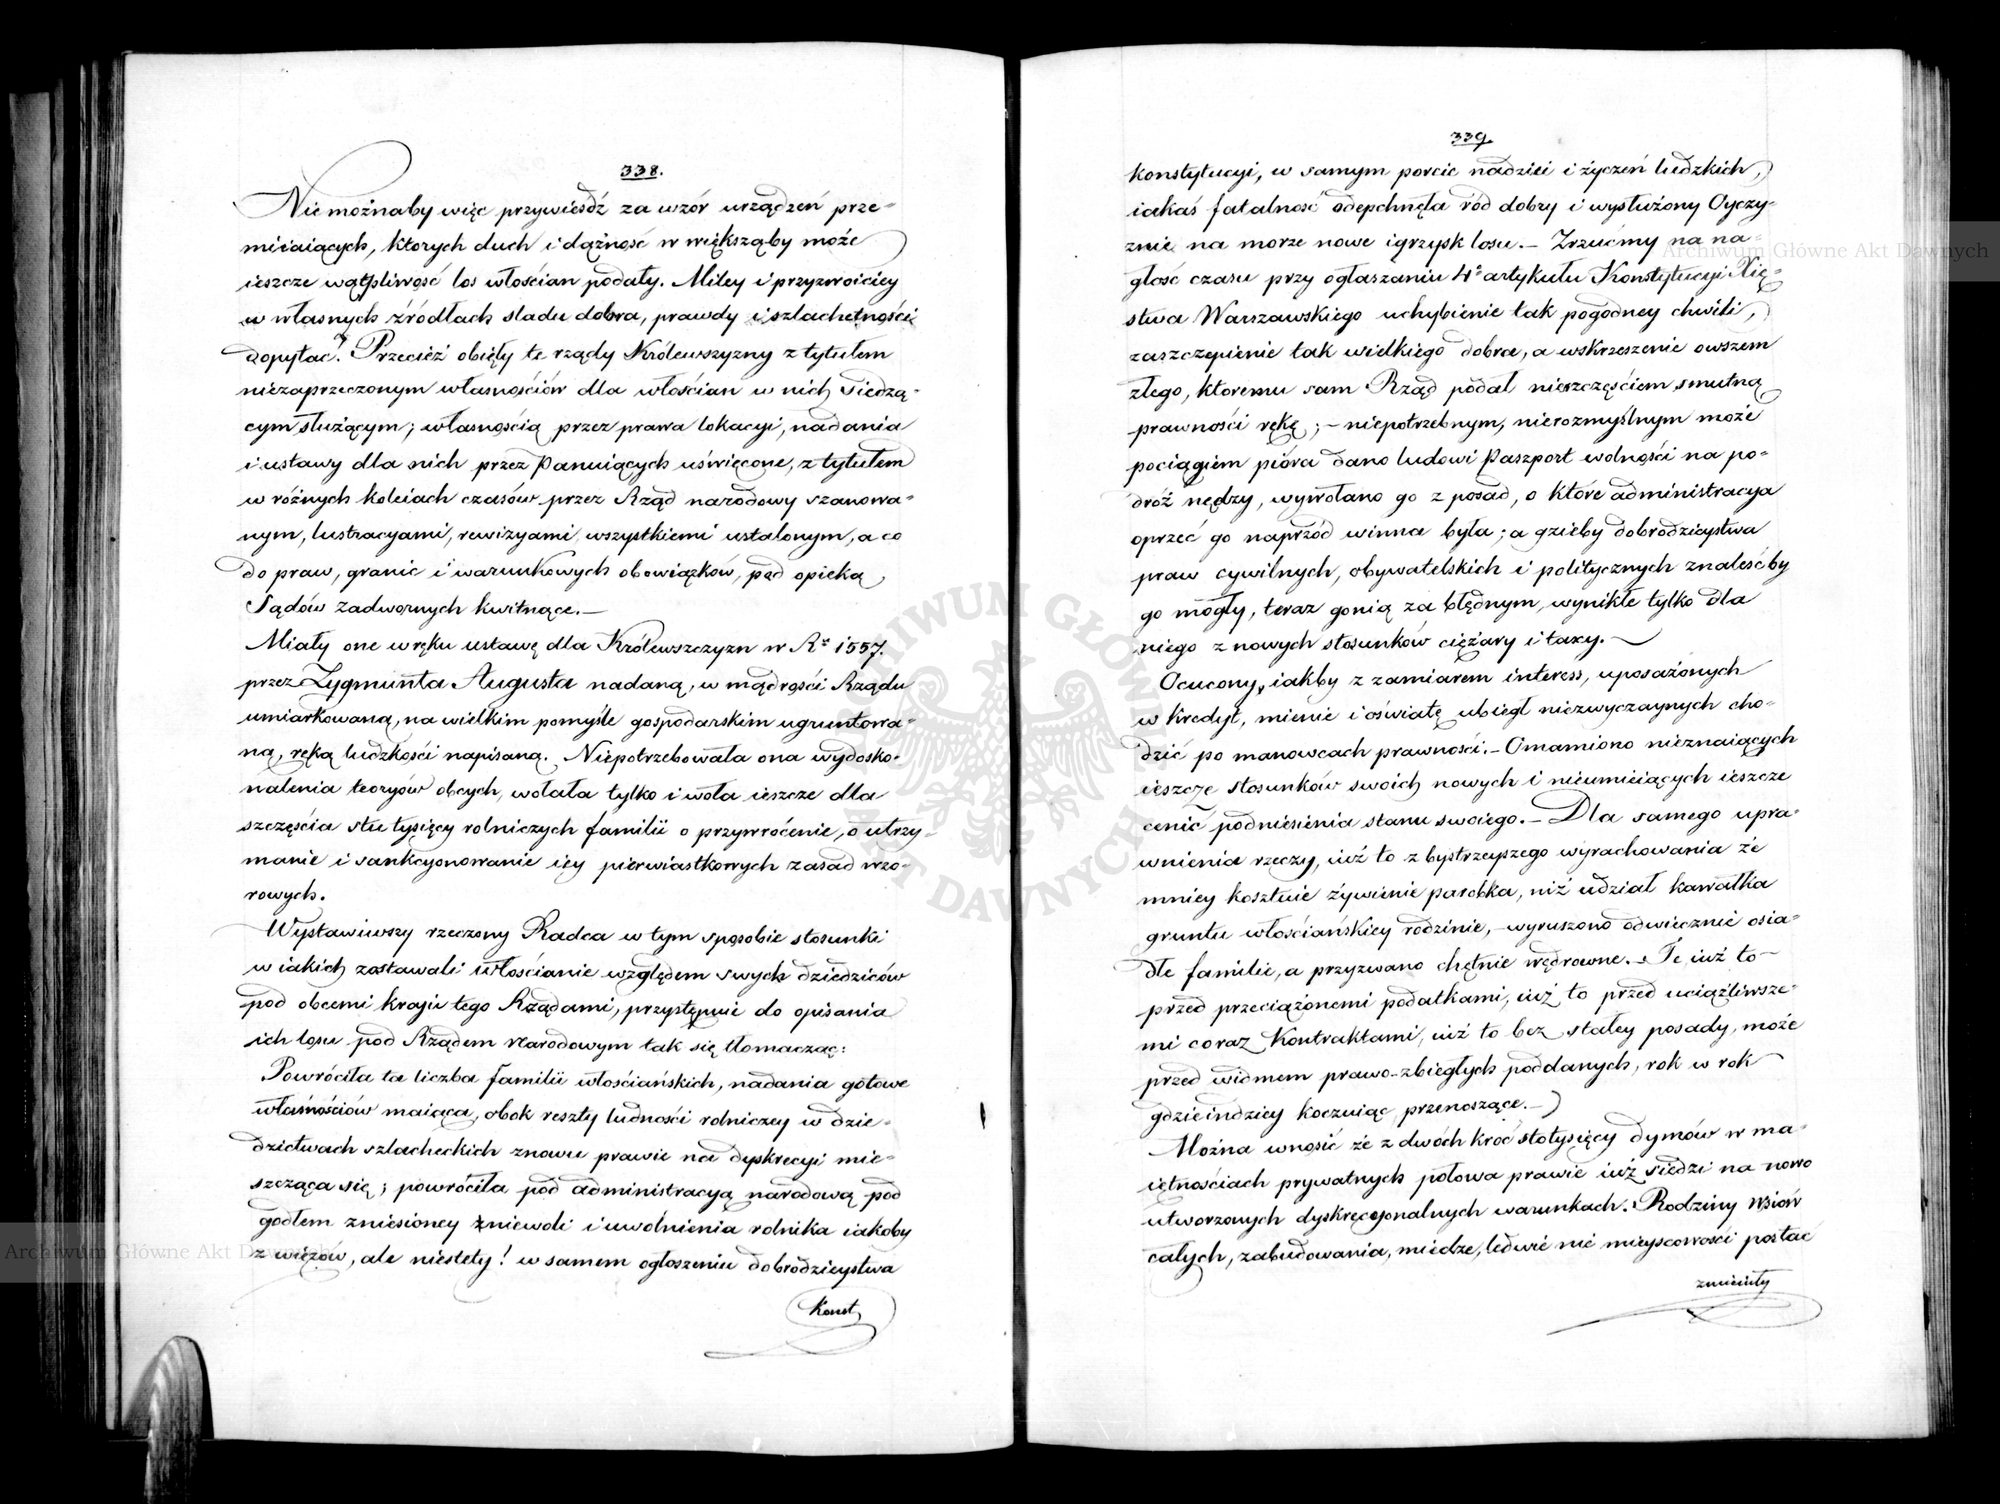 338.
Nie możnaby więc przywieśdź za wzór urządzeń prze=
mieaiących, ktorych duch i dążność w większąby może
ieszcze wątpliwość los włościan podały. Miley i przyzwoiciey
w własnych źródłach sladu dobra, prawdy i szlachetności
dopytać? Przecież obięły te rządy Królewszyzny z tytułem
niezaprzeczonym własnościów dla włościan w nich siedzą=
cym służącym; własnością przez prawa lokacyi, nadania
i ustawy dla nich przez Panuiących uświęcone, z tytułem
w różnych koleiach czasów przez Rząd narodowy szanowa=
nym, lustracyami, rewizyami wszystkiemi ustalonym, a co
do praw, granic i warunkowych obowiązków, pod opieką
Sądów zadwornych kwitnące.—
Miały one w ręku ustawę dla Królewszczyzn w R. 1557.
przez Zygmunta Augusta nadaną, w mądrości Rządu
umiarkowaną, na wielkim pomyśle gospodarskim ugruntowa=
ną, ręką ludzkości napisaną. Niepotrzebowała ona wydosko=
nalenia teoryów obcych, wołała tylko i woła ieszcze dla
szczęścia stu tysięcy rolniczych familii o przywrócenie, o utrzy=
manie i sankcyonowanie iey pierwiastkowych zasad wzo=
rowych.
Wystawiwszy rzeczony Radca w tym sposobie stosunki
w iakich zostawali włościanie względem swych dziedziców
pod obcemi kraiu tego Rządami, przystępuie do opisania
ich losu pod Rządem Narodowym tak się tłomacząc:
Powróciła ta liczba familii włościańskich, nadania gotowe
własnościów maiąca, obok reszty ludności rolniczey w dzie=
dzictwach szlacheckich znowu prawie na dyskrecyi mie=
szcząca się; powróciła pod administracyą narodową pod
godłem zniesioney zniewoli i uwolnienia rolnika iakoby
z więzów, ale niestety! w samem ogłoszeniu dobrodzieystwa
Konst
339.
konstytucyi, w samym porcie nadziei i życzeń ludzkich,
iakaś fatalność odepchnęła ród dobry i wysłużony Oyczy=
znie na morze nowe igrzysk losu.— Zrzućmy na na=
głość czasu przy ogłaszaniu 4o artykułu Konstytucyi Xię=
stwa Warszawskiego uchybienie tak pogodney chwili,
zaszczepienie tak wielkiego dobra, a wskrzeszenie owszem
złego, któremu sam Rząd podał nieszczęściem smutną
prawności rękę;— niepotrzebnym, nierozmyślnym może
pociągiem pióra dano ludowi Paszport wolności na po=
dróż nędzy, wywołano go z posad, o które administracya
oprzeć go naprzód winna była; a gdzieby dobrodzieystwa
praw cywilnych, obywatelskich i politycznych znaleśćby
go mogły, teraz gonią za błędnym, wynikłe tylko dla
niego z nowych stosunków ciężary i taxy.—
Ocucony, iakby z zamiarem interess, uposażonych
w kredyt, mienie i oświatę ubiegł niezwyczaynych cho=
dzić po manowcach prawności.— Omamiono nieznaiących
ieszcze stosunków swoich nowych i nieumieiących ieszcze
cenić podniesienia stanu swoiego.— Dla samego upra=
wnienia rzeczy, iuż to z bystrzeyszego wyrachowania że
mniey kosztuie żywienie parobka, niż udział kawałka
gruntu włościańskiey rodzinie,— wyruszono odwiecznie osia=
dłe familie, a przyzwano chętnie wędrowne.— Te, iuż to—
przed przeciążonemi podatkami, iuż to przed uciążliwsze=
mi coraz Kontraktami, iuż to bez stałey posady, może
przed widmem prawo-zbiegłych poddanych, rok w rok
gdzieindziey koczuiąc, przenoszące.—
Można wnosić że z dwóch kroć stotysięcy dymów w ma=
iętnościach prywatnych połowa prawie iuż siedzi na nowo
utworzonych dyskrecyonalnych warunkach. Rodziny wsiów
całych, zabudowania, miedze, ledwie nie mieyscowości postać
zmieniły